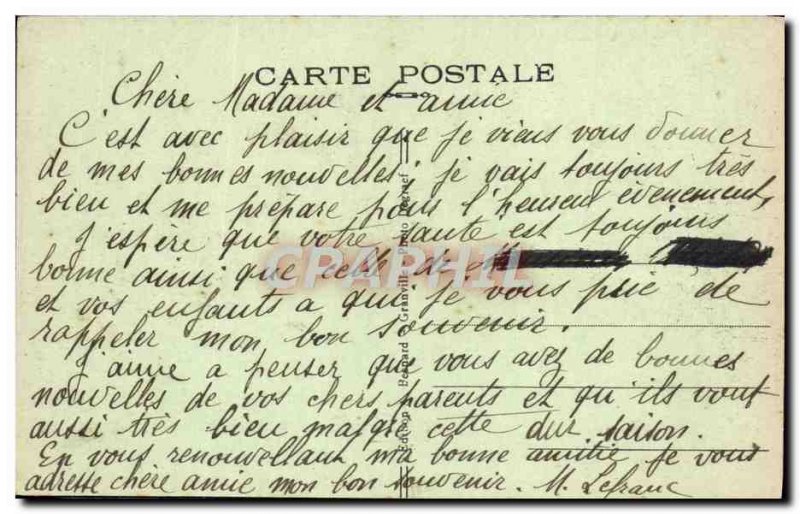 CARTE POSTALE
Chère Madame et amie
C'est avec plaisir que je viens vous donner
de mes bonnes nouvelles; je vais toujours très
bien et me prépare pour l'heureux évènement,
J'espère que votre santé est toujours
bonne ainsi que celle de
et vos enfants a qui je vous prie de
rappeler mon bon souvenir.
J'aime a penser que vous avez de bonnes
nouvelles de vos chers parents et qu'ils vont
aussi très bien malgré cette dur saison.
En vous renouvellant ma bonne amitié je vous
adresse chère amie mon bon souvenir. M. Lefranc
Edition Granville Photo
CPAPHIL